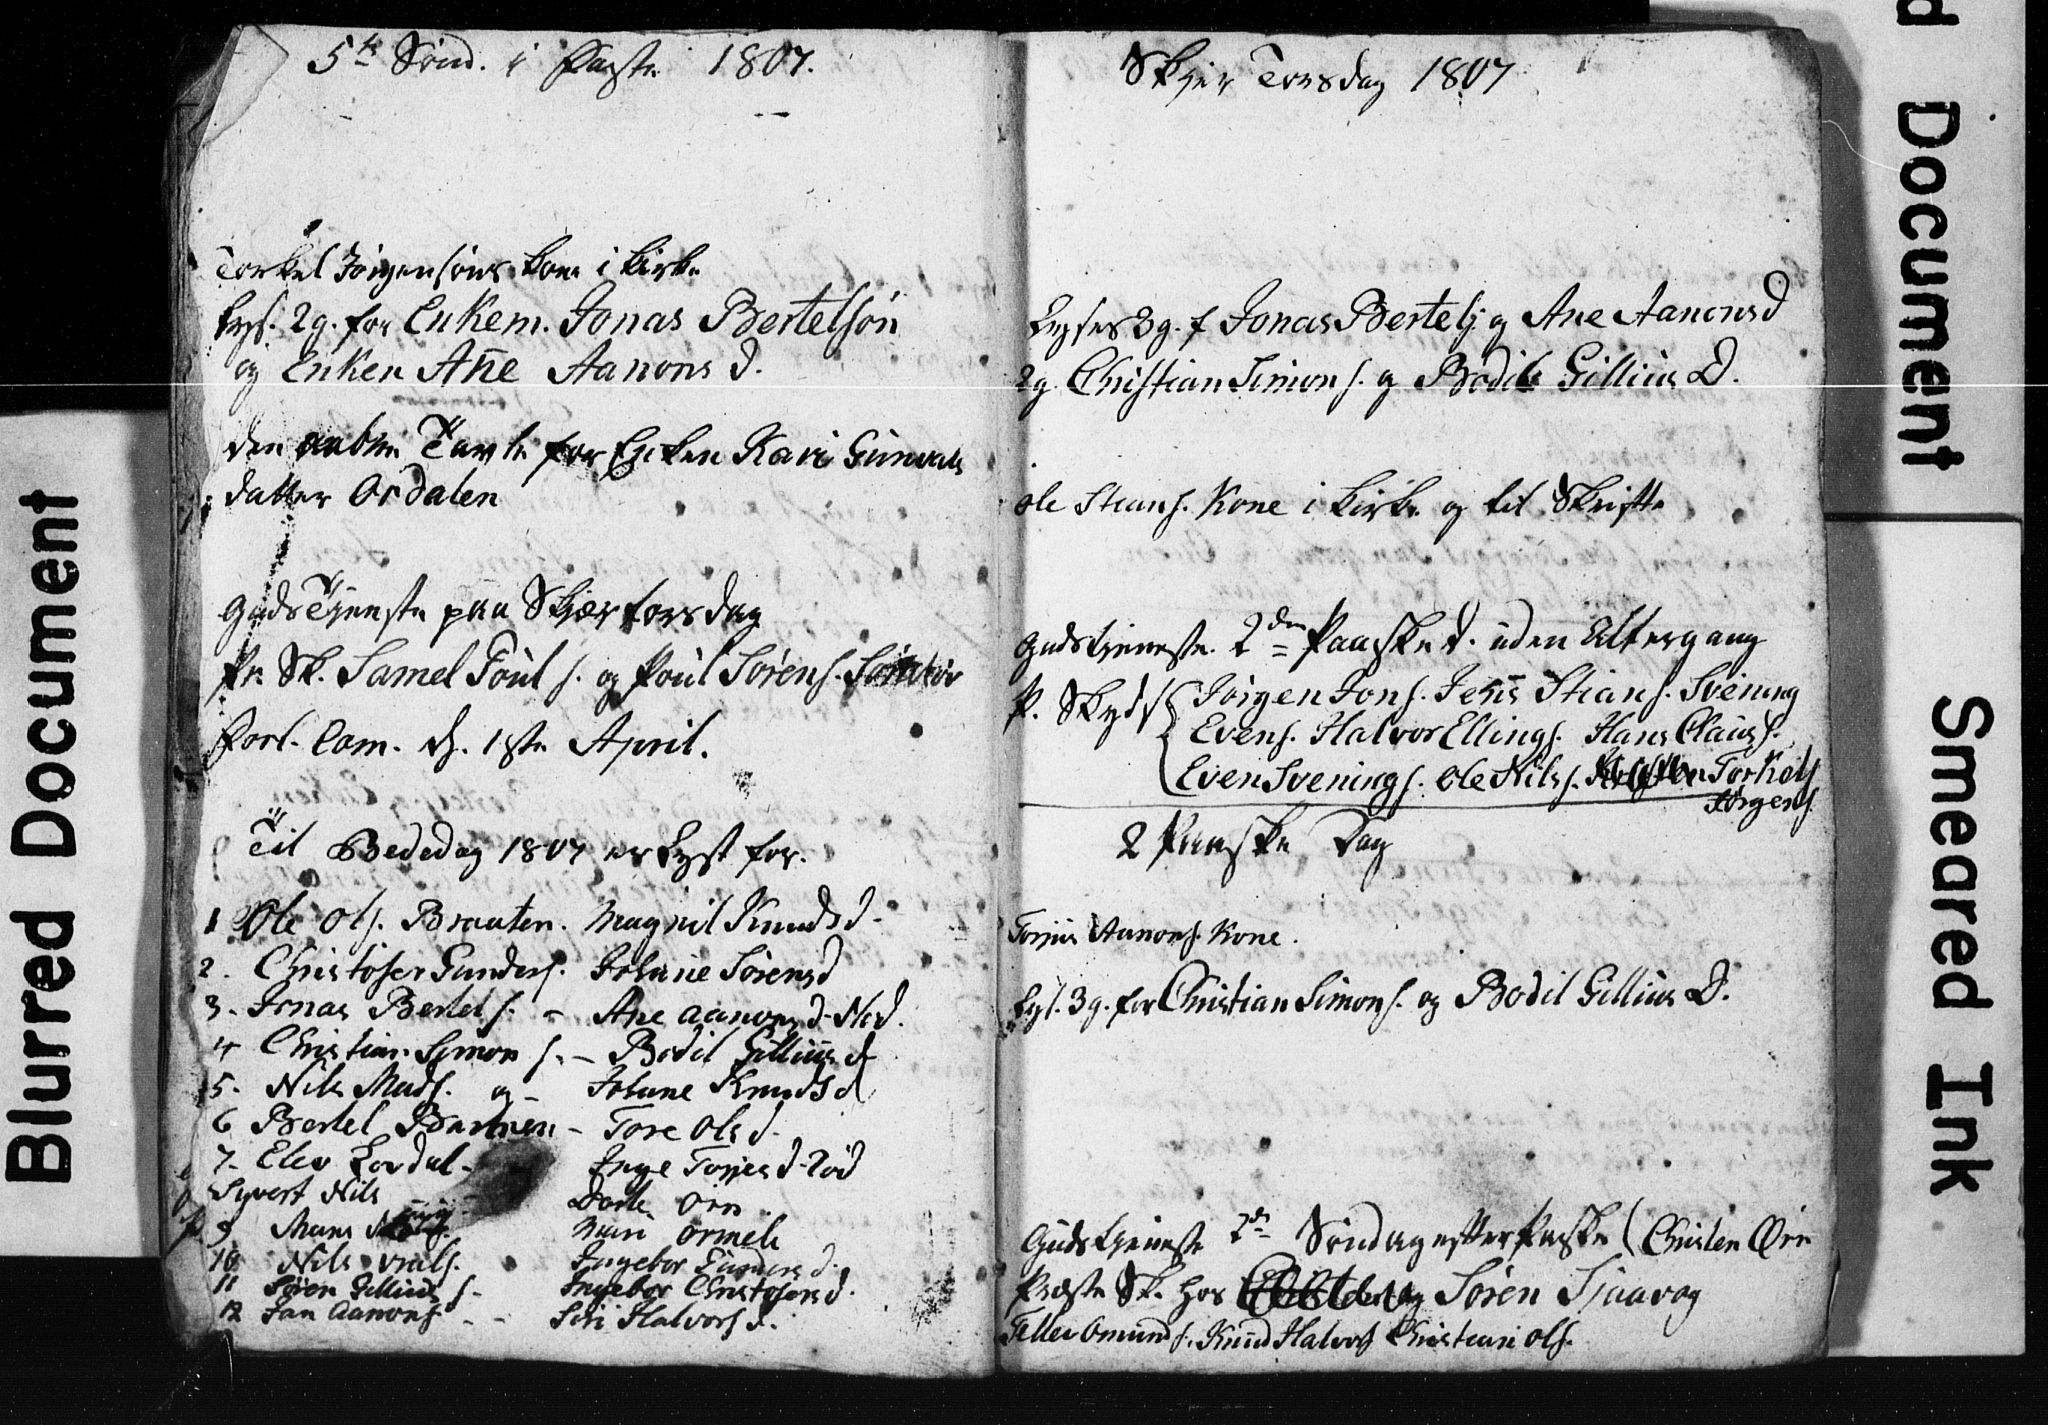 5te Sönd. i Faste 1807.
Torkel Jörgensöns kone i kirke
Lyst. 2g. for Enkem. Jonas Bertelsön
og Enken Ane Aanons d.
den Tavle for Enken Kari Gunvals
datter Ordalen
Guds Tjeneste paa Skjærtorsdag
Pr. Sk. Samel Poul s. og Poul Sörens.
Forl. Com. d. 1ste April.
Til Bededag 1807 er Lyst for.
1 Ole Ols. Braaten. Magnil Knuds d.
2. Christofer Gunders. Johane Sörens d
3. Jonas Bertels. - Ane Aanons d. Næd.
4 Christian Simon s. - Bodil Gillius d
5. Nils Mads. og - Johane Knuds d
6 Bertel - Tore Ols d.
7. Elev Lovdal - Inge Torjes d.
Syvert Nils Dorte Örn
9 Mari Ormeli
10 Nils Ingebor Gunders d.
11 Sören Gillius s - Ingebor Christofers d.
12 Jan Aanons - - Siri Halvors d.
Skjer Torsdag 1807
Lyses 3g. f Jonas Bertels. og Ane Aanons d
2g. Christian Simon s. og Bodil Gillius D.
Ole Stians. Kone i kirke og til Skrifte
Gudstjeneste 2den Paaske d. uden Altergang
P. Skyds Jörgen Jons. Jens Stians. Svening
Evens. Halvor Ellings. Hans Claus s.
Even Svenings. Ole Nils s. Torkel
Jörgens.
2 Paaske Dag
Torjus Aanons. Kone.
Lys. 3g. for Christian Simons. og Bodil Gillius D.
Gudstjeneste 2den Söndag efter Paaske Christen Örn
Præste Sk. hos Sören Sjaavog
Tellev Omunds. Knud Halvors Christian Ols.
Blurred Document
Document
Smeared Ink